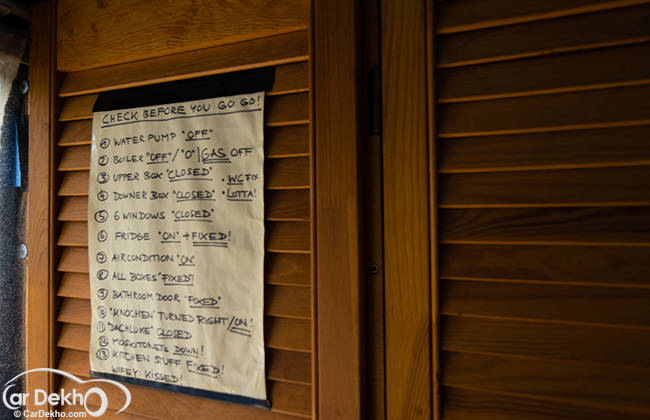 CHECK BEFORE YOU GO GO!
① WATER PUMP "OFF"
② BOILER "OFF"/"0"/GAS OFF
③ UPPER BOX "CLOSED" • WC FIX
④ DOWNER BOX "CLOSED" • LOTTA!
⑤ 6 WINDOWS "CLOSED"
⑥ FRIDGE "ON" + FIXED!
⑦ AIRCONDITION "ON"
⑧ ALL BOXES "FIXED"!
⑨ BATHROOM DOOR "FIXED"
⑩ "KNOCHEN" TURNED RIGHT/ON!
⑪ "DACHLUKE" CLOSED
⑫ MOSKITONETS DOWN!
⑬ KITCHEN STUFF FIXED!
WIFEY: KISSED!
CarDekho
© CarDekho.com